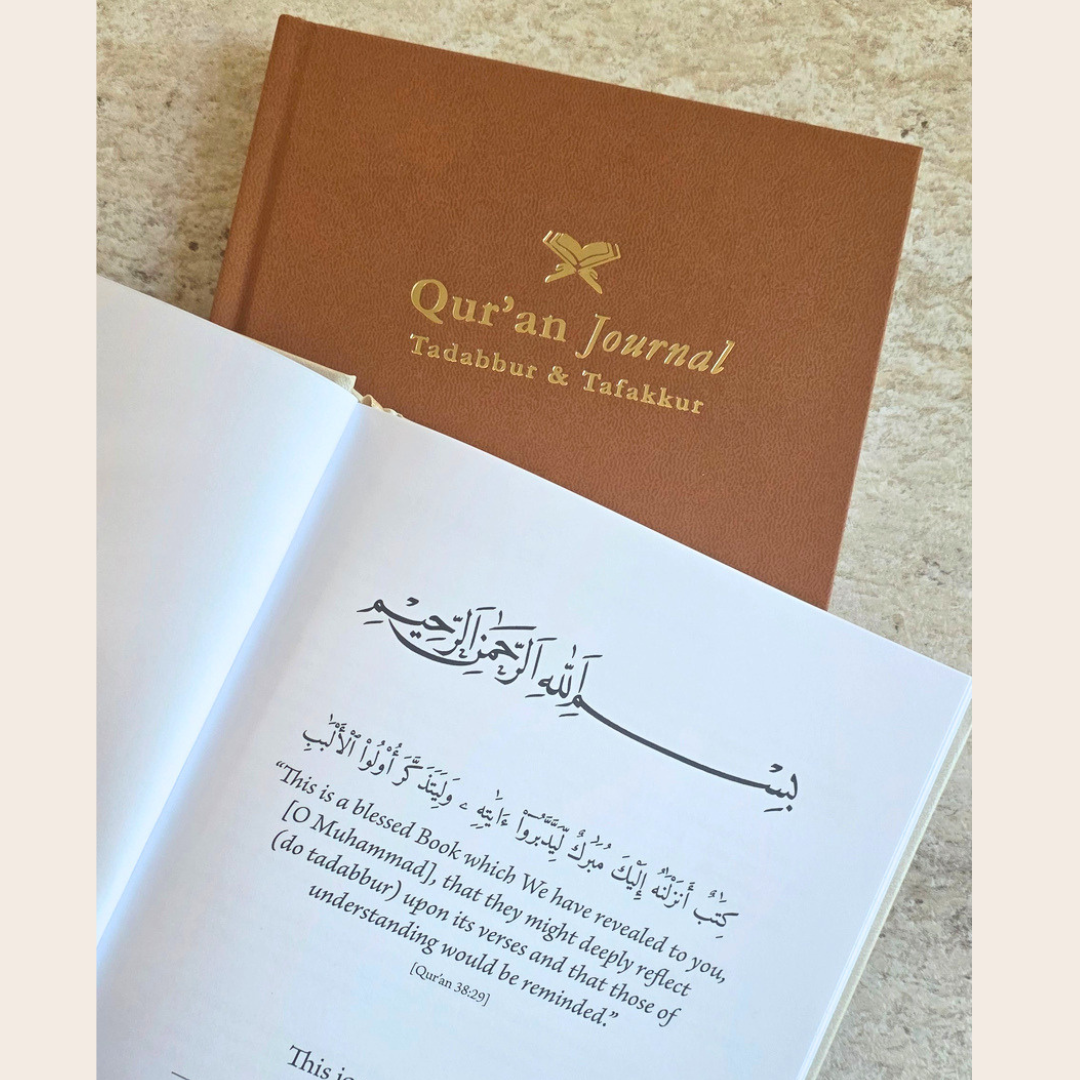 Qur’an Journal
Tadabbur & Tafakkur
بِسْمِ اللّٰهِ الرَّحْمٰنِ الرَّحِيْمِ
كِتَٰبٌ أَنزَلْنَٰهُ إِلَيْكَ مُبَٰرَكٌ لِّيَدَّبَّرُوٓا۟ ءَايَٰتِهِۦ وَلِيَتَذَكَّرَ أُو۟لُوا۟ ٱلْأَلْبَٰبِ
“This is a blessed Book which We have revealed to you,
[O Muhammad], that they might deeply reflect
(do tadabbur) upon its verses and that those of
understanding would be reminded.”
[Qur’an 38:29]
This is